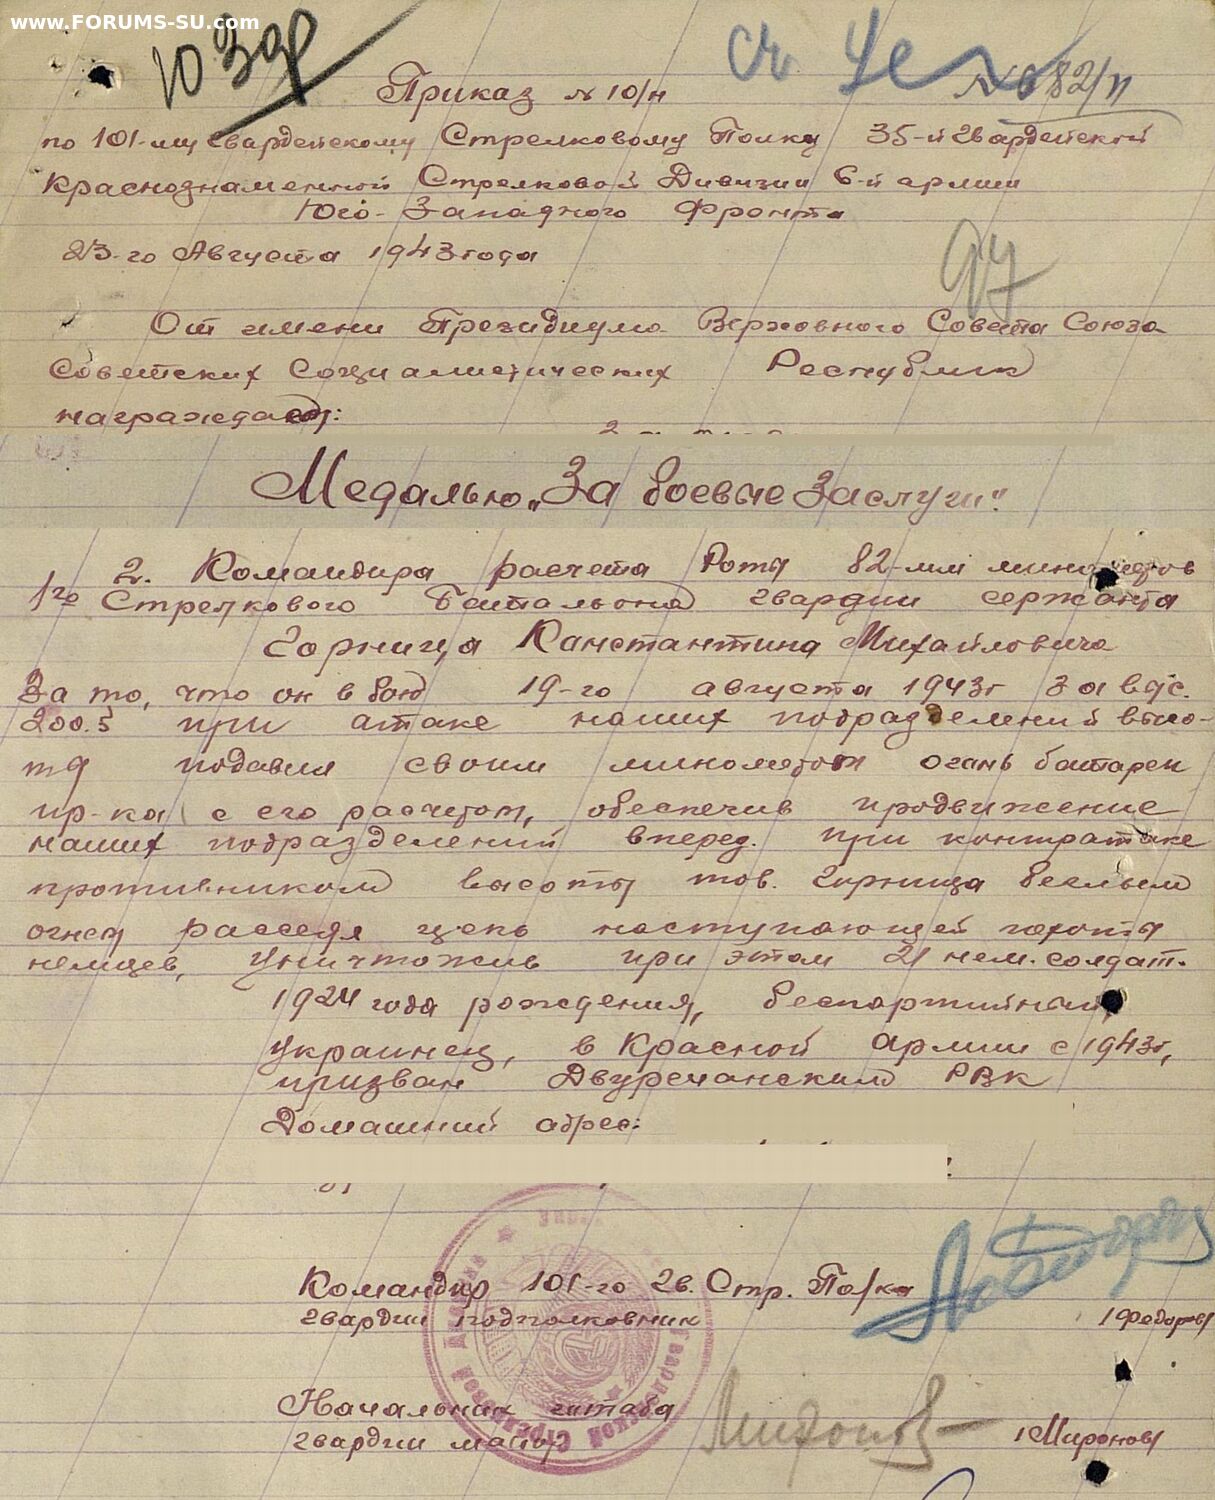 www.FORUMS-SU.com
Приказ №10/н
№082/п
по 101-му Гвардейскому Стрелковому Полку 35-й Гвардейской
Краснознаменной Стрелковой Дивизии 6-й армии
Юго-Западного Фронта
23-го Августа 1943 года
От имени Президиума Верховного Совета Союза
Советских Социалистических Республик
награждаю:
Медалью „За боевые заслуги":
2. Командира расчета Роты 82-мм минометов
1го Стрелкового Батальона гвардии сержанта
Горница Канстантина Михайловича
За то, что он в бою 19-го августа 1943г за выс.
200.5 при атаке наших подразделений высо-
ты подавил своим минометом огонь батареи
пр-ка с его расчетом, обеспечив продвижение
наших подразделений вперед. При контратаке
противником высоты тов. Горница беглым
огнем рассеял цепь наступающей пехоты
немцев, уничтожив при этом 21 нем. солдат.
1924 года рождения, беспартийный,
украинец, в Красной армии с 1943г,
призван Двуречанским РВК
Домашний адрес:
Командир 101-го Гв. Стр. Полка
гвардии подполковник /Федоров/
Начальник штаба
гвардии майор /Миронов/
Гвардейской Стрелковой